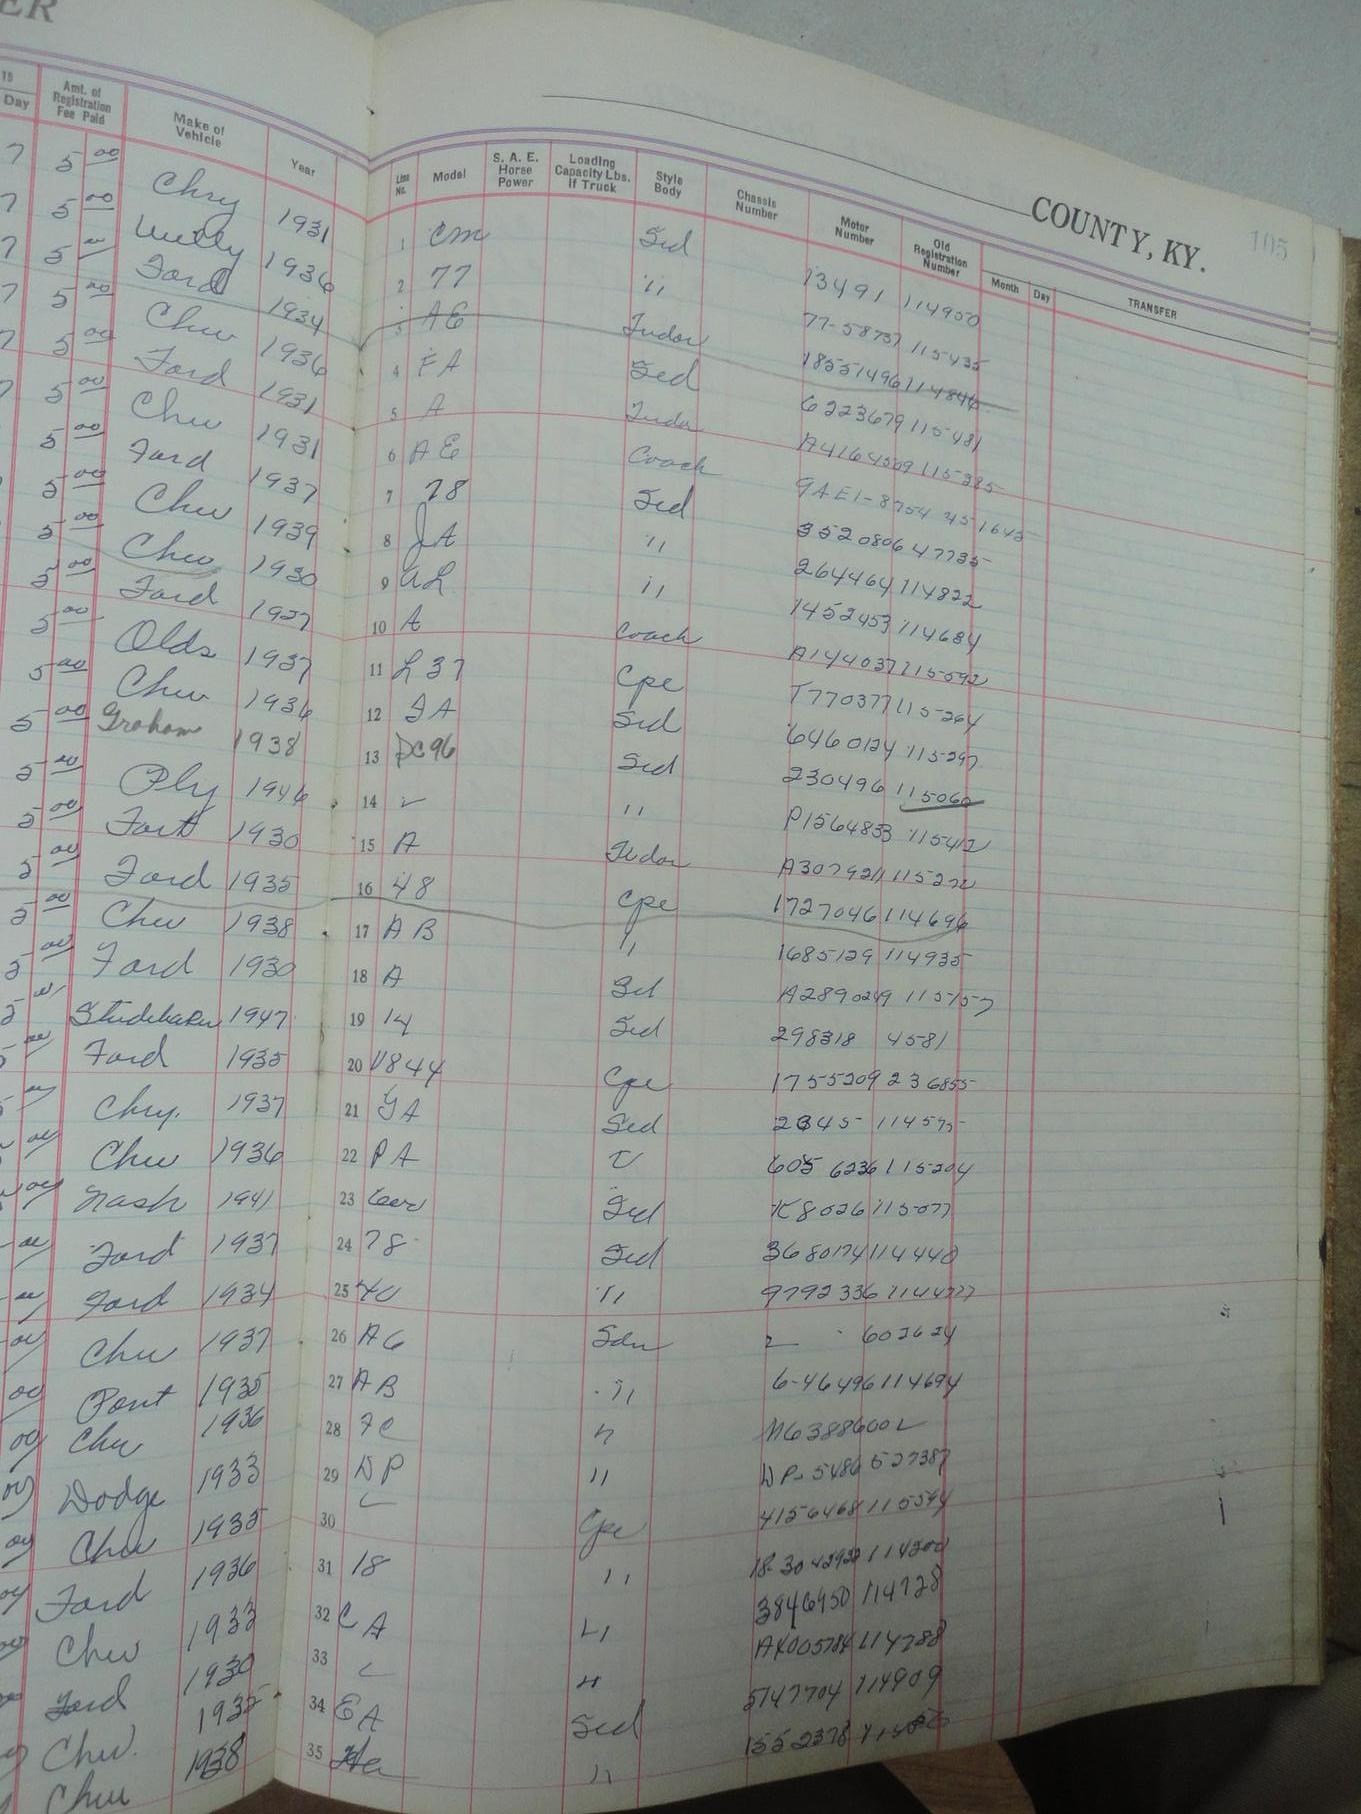 ER
COUNTY, KY. 105
19 Day Amt. of Registration Fee Paid Make of Vehicle Year Line No. Model S. A. E. Horse Power Loading Capacity Lbs. If Truck Style Body Chassis Number Motor Number Old Registration Number Month Day TRANSFER
7 5 00 Chry 1931 1 cm Sed 13491 114950
7 5 00 Willy 1936 2 77 " 77-58737 115435
7 5 Ford 1934 3 Tudor 18551496 114846
7 5 00 Chev 1936 4 FA Sed 6223679 115481
7 5 00 Ford 1931 5 A Tudor A4164509 115385
7 5 00 Chev 1931 6 AE Coach 9AE1-8754 451645
5 00 Ford 1937 7 78 Sed 3520806 47735
5 00 Chev 1939 8 JA " 264464 114822
5 00 Chev 1930 9 " 1452453 114684
5 00 Ford 1927 10 A Coach A144037 115592
5 00 Olds 1937 11 L 37 Cpe T770377 115264
5 00 Chev 1936 12 Sed 6460124 115297
5 00 Graham 1938 13 Sed 230496 115060
5 00 Ply 1946 14 " P1564833 115412
5 00 1930 15 A Tudor A3079211 115272
5 00 Ford 1935 16 48 Cpe 1727046 114696
5 00 Chev 1938 17 AB " 1685129 114935
5 00 Ford 1930 18 A Sed A2890249 115157
5 Studebaker 1947 19 14 Sed 298318 4581
00 Ford 1935 20 V8 44 Cpe 1755209 236855
Chry. 1937 21 Sed 114575
00 Chev 1936 22 605 6236 115204
00 Nash 1941 23 Sed K8026 115077
00 Ford 1937 24 78 Sed 3680174 114440
Ford 1934 25 40 " 9792336
00 Chev 1937 26 Sdn 602624
00 Pont 1935 27 AB " 6-46496 114694
00 Chev 1936 28 " M6388600
00 Dodge 1933 29 DP " DP-5486 527387
00 Chev 1935 30 Cpe 4156468 115594
00 Ford 1936 31 18 " 114200
Chev 1933 32 CA " 3846950 114728
Ford 1930 33 " 114788
Chev. 1935 34 EA Sed 5147704 114909
Chev 1938 35 " 1552378